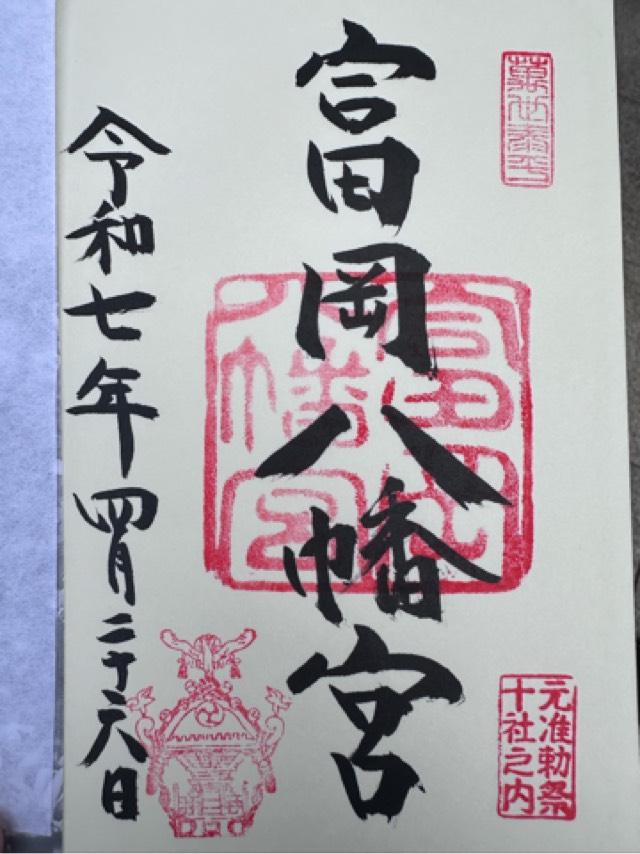 萬世泰平
富岡八幡宮
富岡八幡宮
元准勅祭
十社之内
令和七年四月二十六日